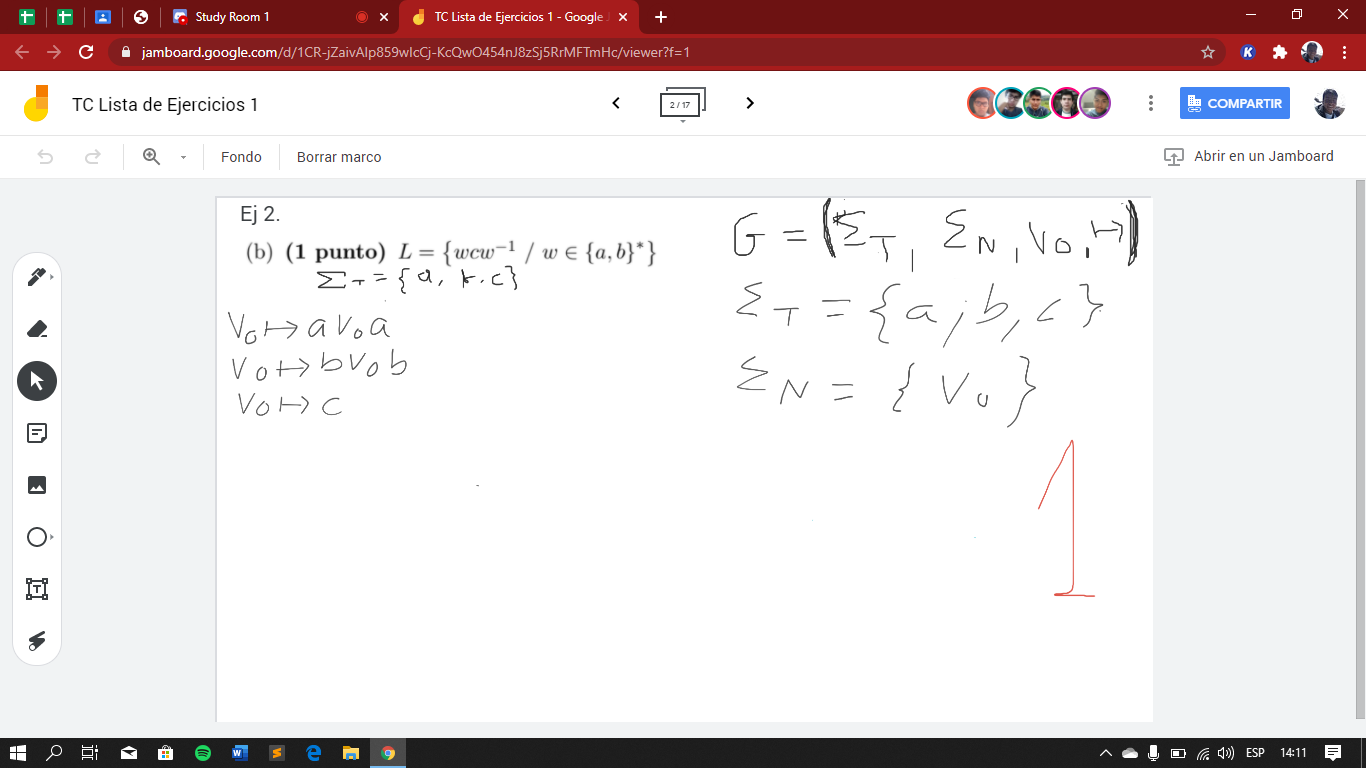 Study Room 1
TC Lista de Ejercicios 1 - Google J
jamboard.google.com/d/1CR-jZaivAlp859wIcCj-KcQwO454nJ8zSj5RrMFTmHc/viewer?f=1
TC Lista de Ejercicios 1
2 / 17
COMPARTIR
Fondo
Borrar marco
Abrir en un Jamboard
Ej 2.
(b) (1 punto) L = {wcw⁻¹ / w ∈ {a, b}*}
Σ_T = {a, b, c}
V₀ ↦ a V₀ a
V₀ ↦ b V₀ b
V₀ ↦ c
G = (Σ_T, Σ_N, V₀, ↦)
Σ_T = {a, b, c}
Σ_N = { V₀ }
1
ESP
14:11